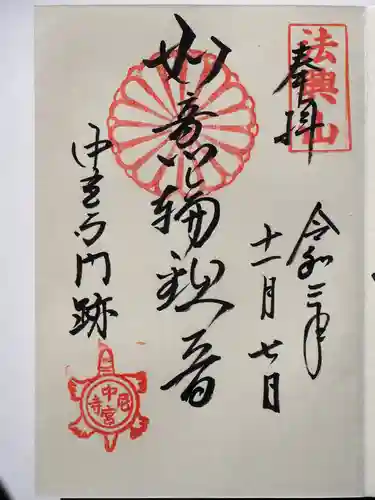 法興山
奉拝
令和三年
十一月七日
如意輪観音
中宮寺門跡
中宮尼寺